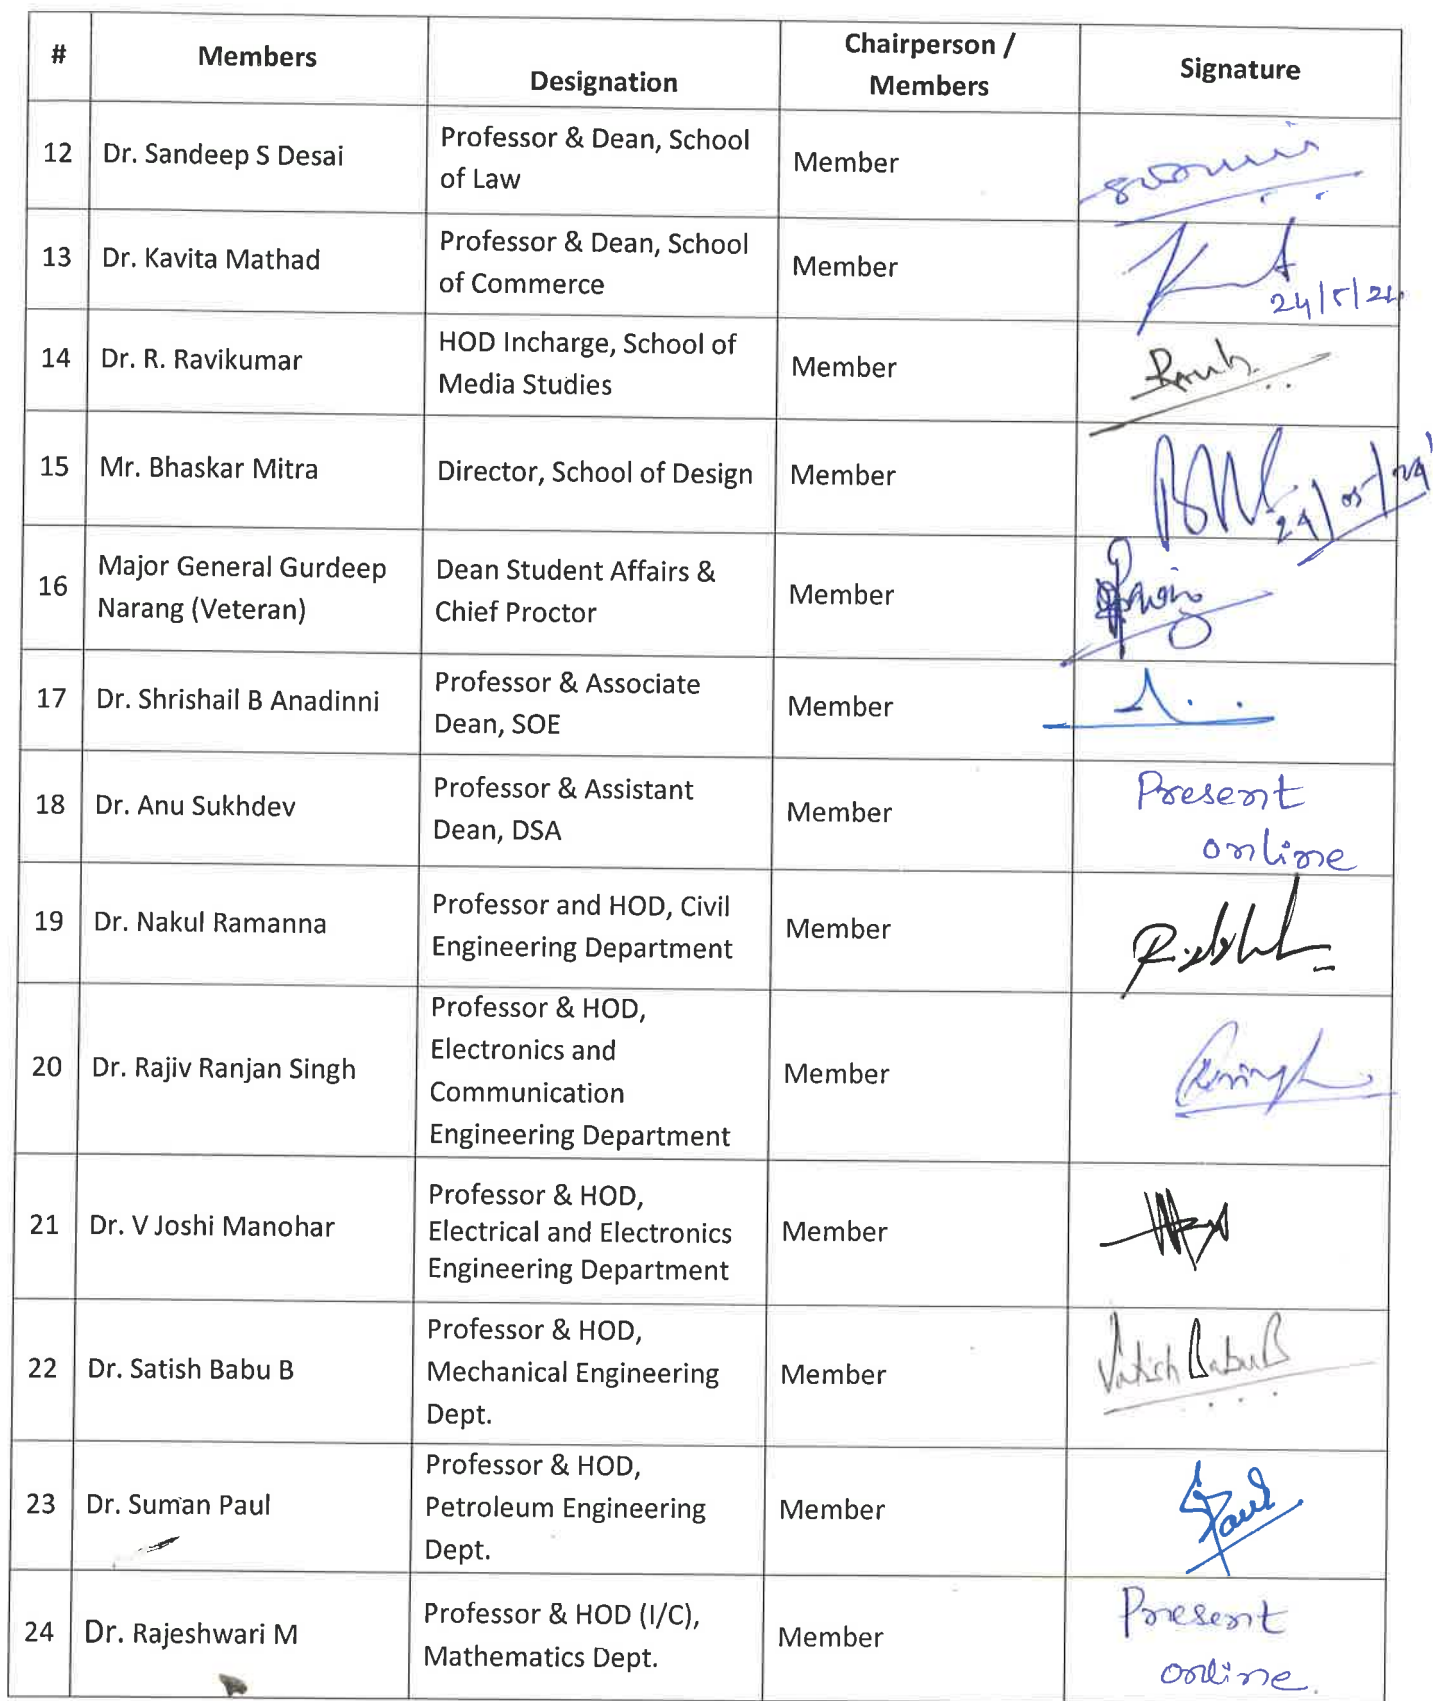 # Members Designation Chairperson / Members Signature
12 Dr. Sandeep S Desai Professor & Dean, School of Law Member
13 Dr. Kavita Mathad Professor & Dean, School of Commerce Member 24/5/24
14 Dr. R. Ravikumar HOD Incharge, School of Media Studies Member
15 Mr. Bhaskar Mitra Director, School of Design Member 24/05/24
16 Major General Gurdeep Narang (Veteran) Dean Student Affairs & Chief Proctor Member
17 Dr. Shrishail B Anadinni Professor & Associate Dean, SOE Member
18 Dr. Anu Sukhdev Professor & Assistant Dean, DSA Member Present online
19 Dr. Nakul Ramanna Professor and HOD, Civil Engineering Department Member
20 Dr. Rajiv Ranjan Singh Professor & HOD, Electronics and Communication Engineering Department Member
21 Dr. V Joshi Manohar Professor & HOD, Electrical and Electronics Engineering Department Member
22 Dr. Satish Babu B Professor & HOD, Mechanical Engineering Dept. Member Satish Babu B
23 Dr. Suman Paul Professor & HOD, Petroleum Engineering Dept. Member SPaul
24 Dr. Rajeshwari M Professor & HOD (I/C), Mathematics Dept. Member Present online.